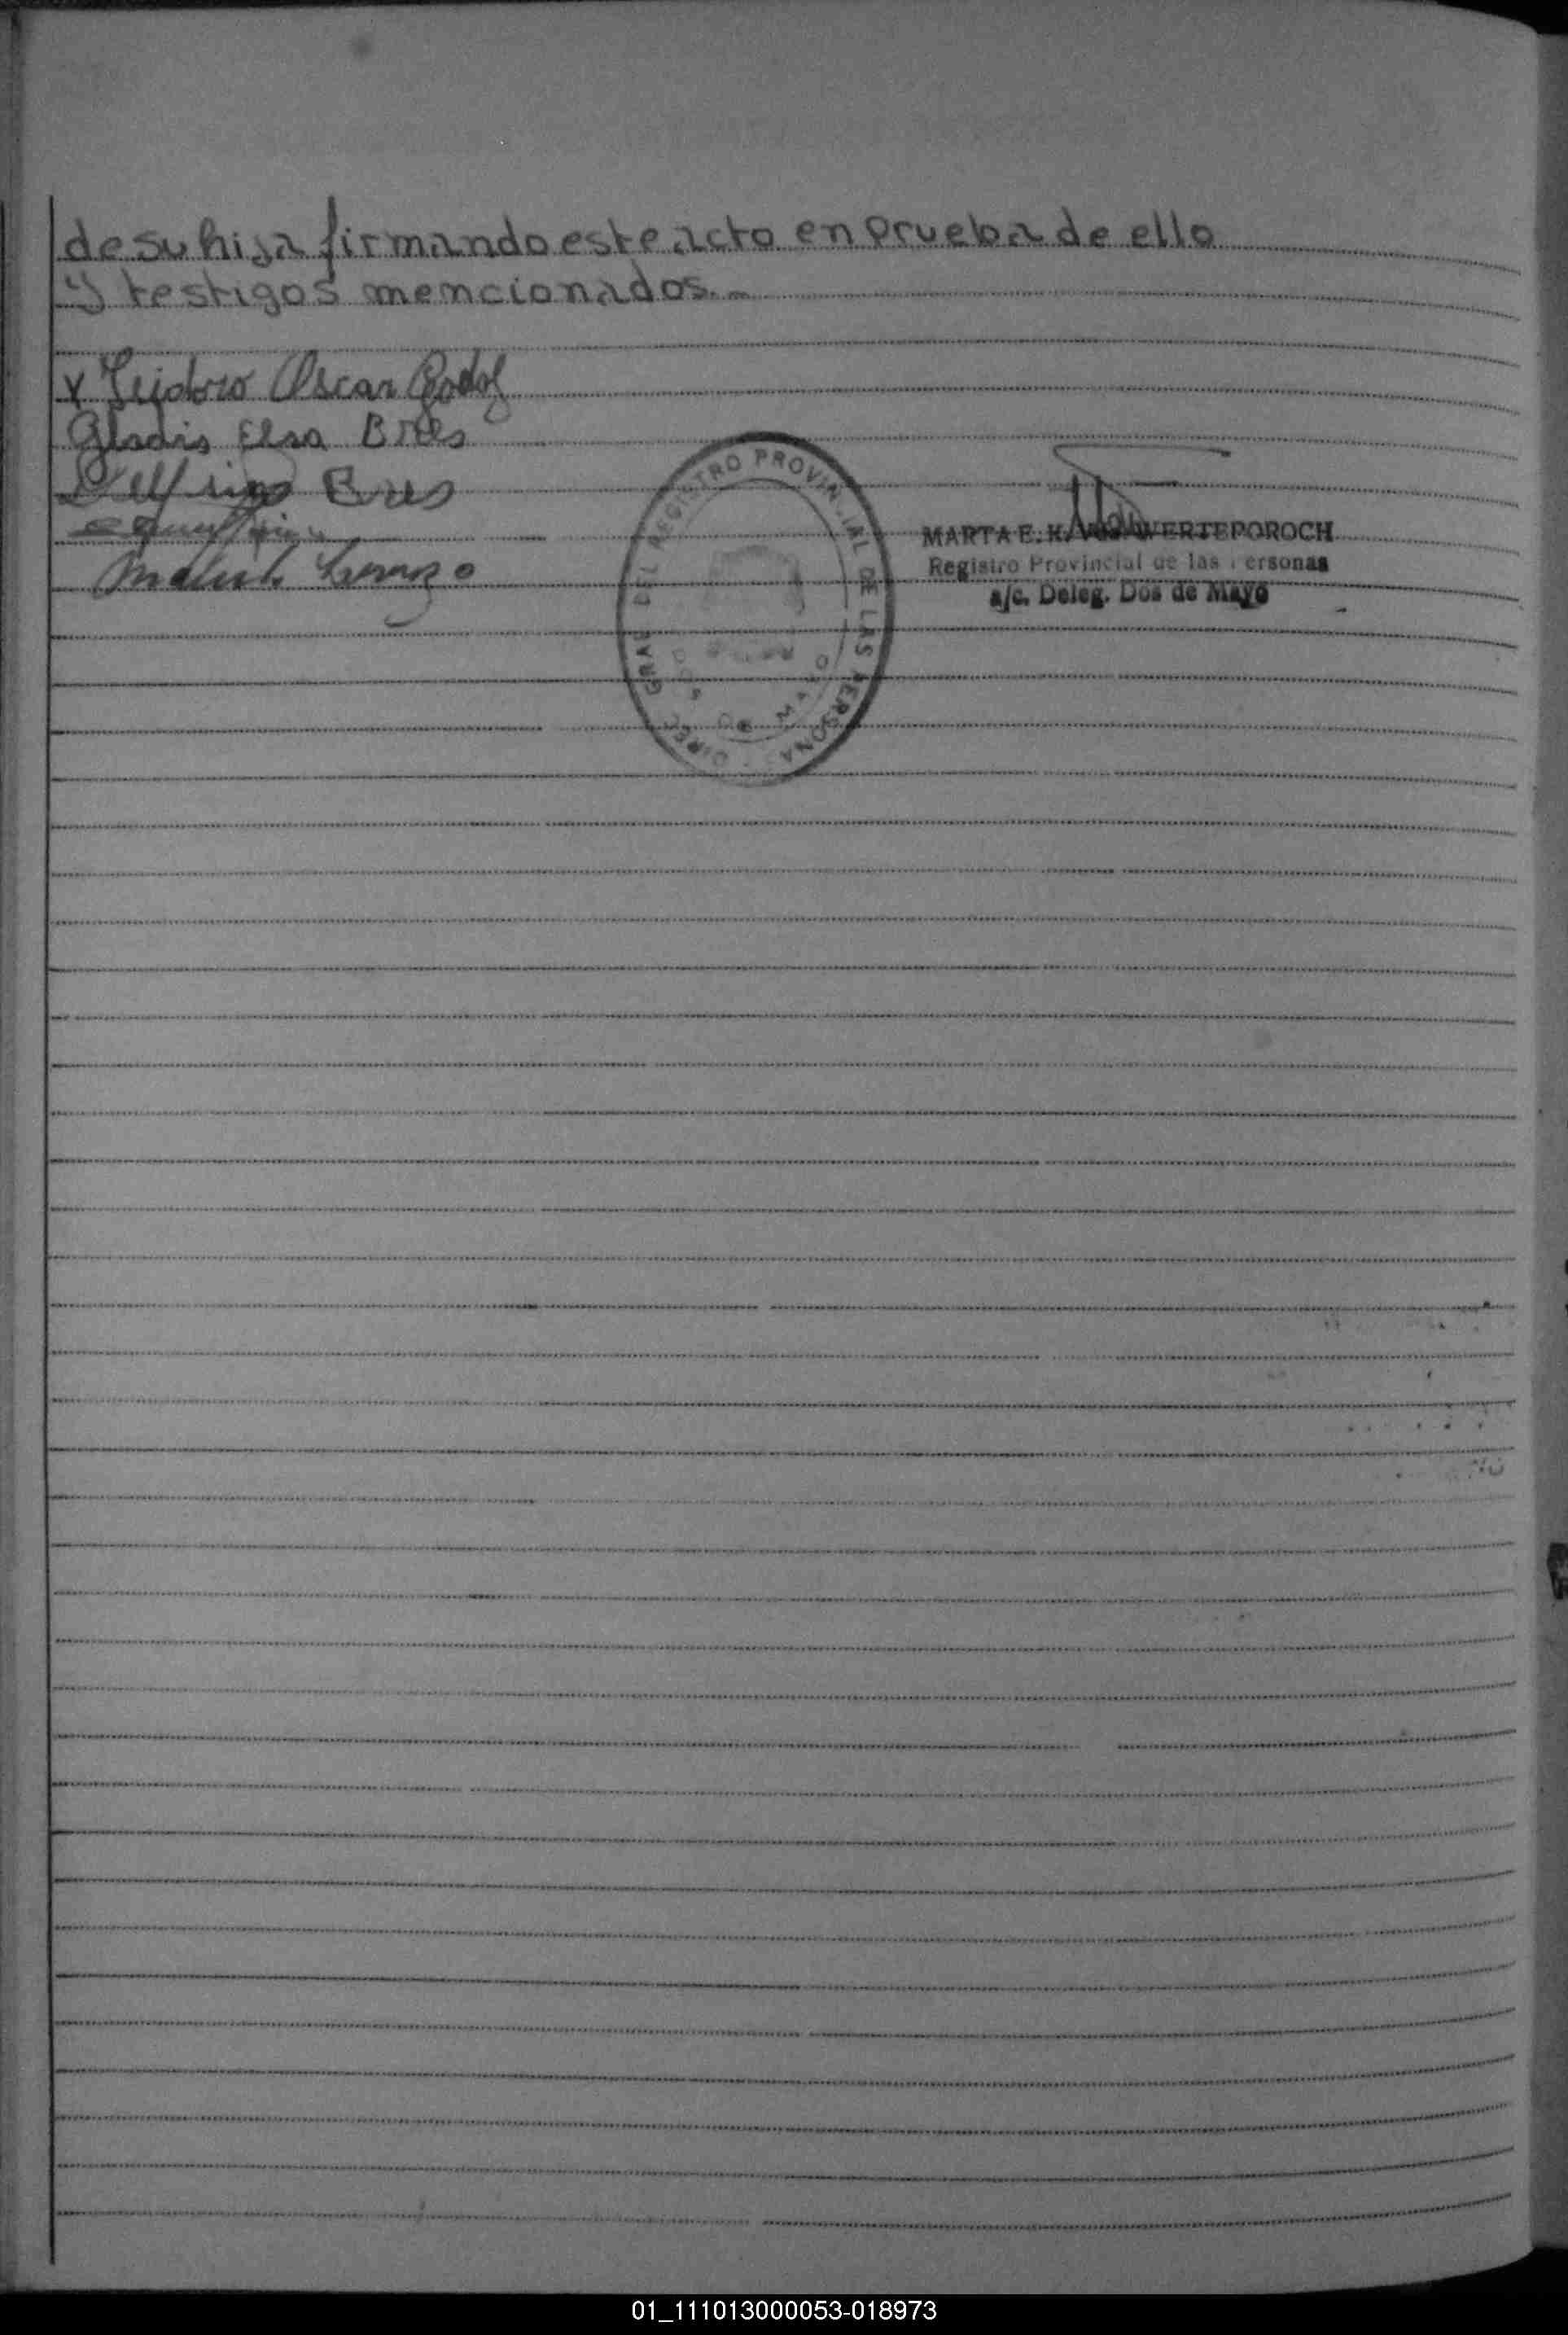 de su hija firmando este acto en prueba de ello
y testigos mencionados.-
x Isidoro Oscar Godoy
Gladis Elsa Bres
Bres
DIREC. GRAL. DEL REGISTRO PROVINCIAL DE LAS PERSONAS
MARTA E. K. WERTEPOROCH
Registro Provincial de las Personas
a/c. Deleg. Dos de Mayo
01_111013000053-018973